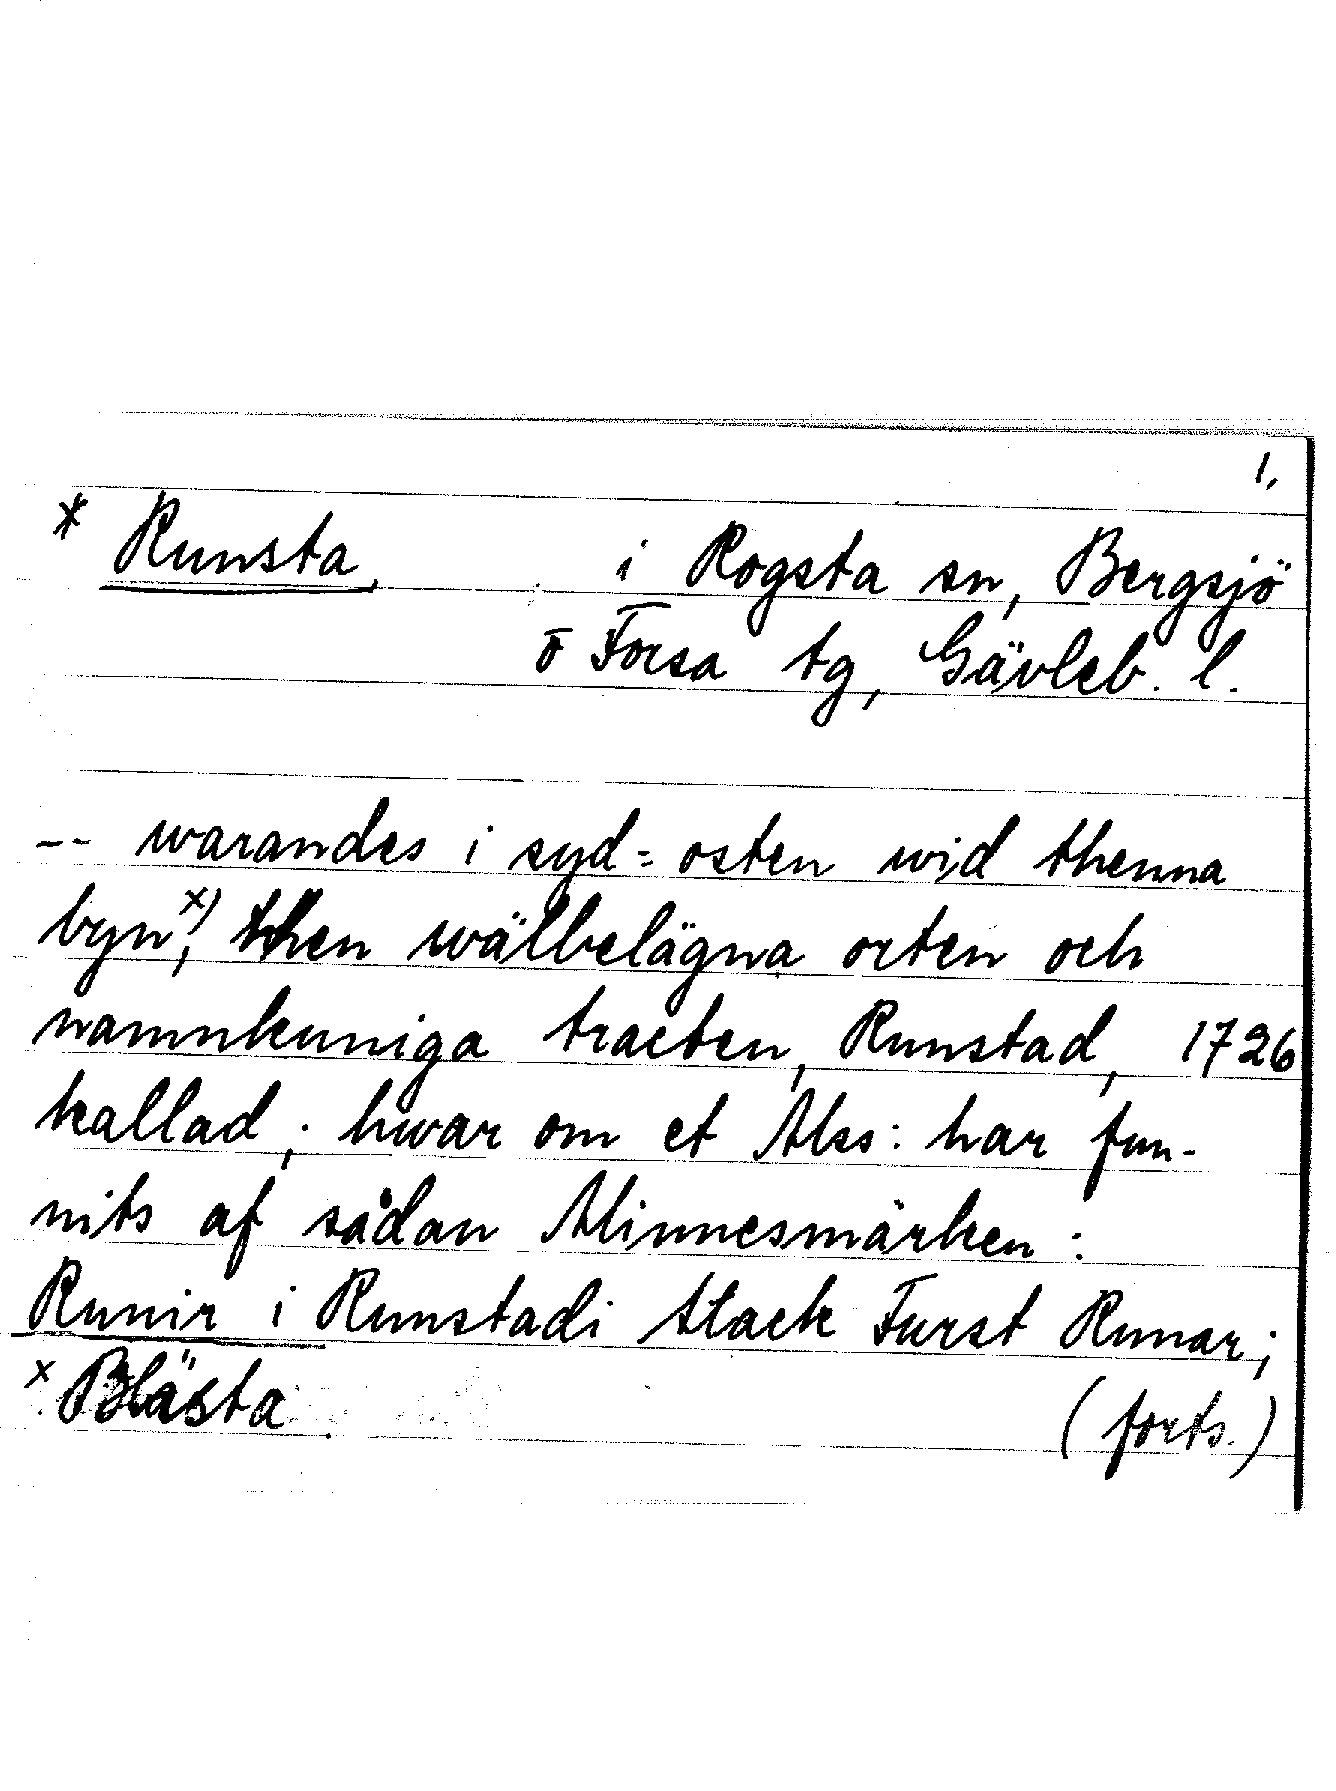 1.
* Runsta, i Rogsta sn, Bergsjö
o Forsa tg, Gävleb. l.
-- warandes i syd= osten wid thenna
byn x), then wälbelägna orten och
namnkuniga tracten, Runstad, 1726
kallad; hwar om et Mss: har fun-
nits af sådan Minnesmärken:
Runir i Runstadi Stack Furst Runar;
x Blästa
(forts.)